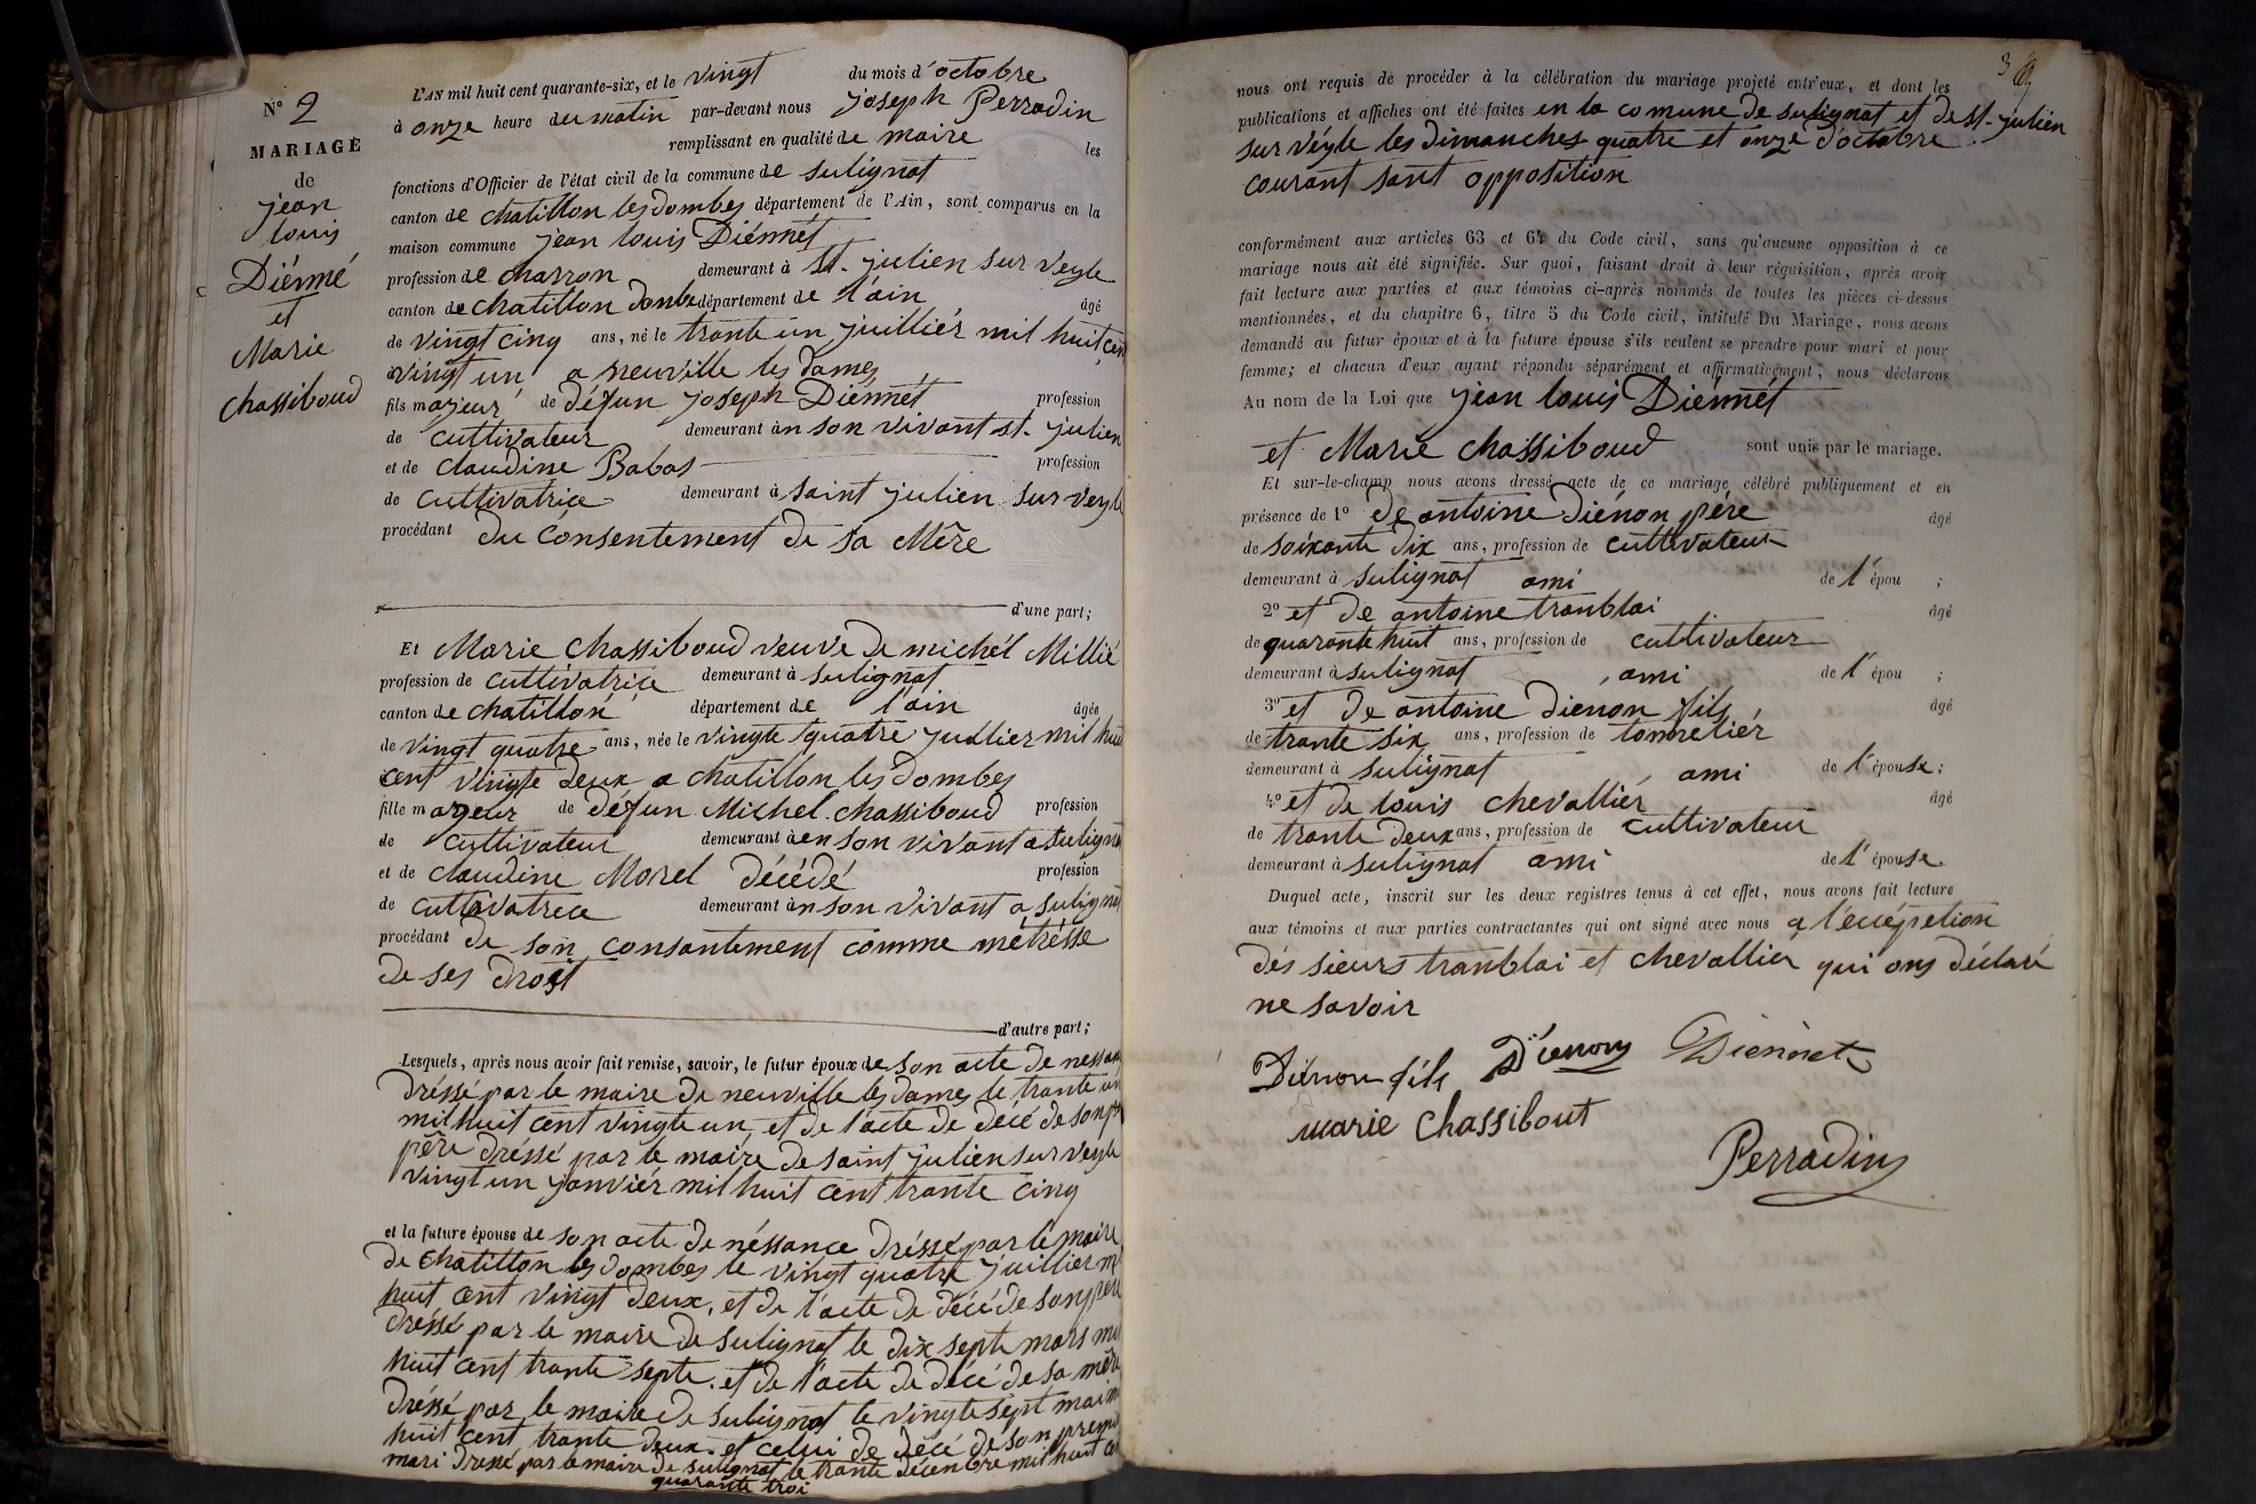 N° 2
MARIAGE
de
jean
louis
Diénné
et
Marie
chassiboud
L'AN mil huit cent quarante-six, et le vingt du mois d'octobre
à onze heure du matin par-devant nous joseph Perradin
remplissant en qualité de maire les
fonctions d'Officier de l'état civil de la commune de sulignat
canton de chatillon les dombes département de l'Ain, sont comparus en la
maison commune jean louis Diénnét
profession de charron demeurant à st. julien sur veyle
canton de chatillon donbe département de l'ain âgé
de vingt cinq ans, né le trante un juilliér mil huit cen
vingt un a neuville les dames
fils majeur de défun joseph Diénnét profession
de cultivateur demeurant àn son vivant st. julien
et de claudine Babas profession
de cultivatrice demeurant à saint julien sur veyle
procédant du consentement de sa Mère
d'une part;
Et Marie chassiboud veuve de michél Millié
profession de cultivatrice demeurant à sulignat
canton de chatillon département de l'ain âgée
de vingt quatre ans, née le vingte quatre juillier mil hui
cent vingte deux a chatillon les dombes
fille majeur de défun Michel chassiboud profession
de cultivateur demeurant àen son vivant a suligna
et de claudine Morel décédé profession
de cultivatrice demeurant àn son vivant a sulignat
procédant de son consantement comme métrésse
de ses droit
d'autre part;
Lesquels, après nous avoir fait remise, savoir, le futur époux de son acte de nessan
dréssé par le maire de neuville les dames le trante un
mil huit cent vingte un, et de l'acte de décé de son
pére dréssé par le maire de saint julien sur veyle
vingt un janviér mil huit cent trante cinq
et la future épouse de son acte de néssance dréssé par le maire
de chatillon les dombes le vingt quatre juillier mi
huit cent vingt deux, et de l'acte de décé de son pere
dréssé par le maire de sulignat le dix septe mars mi
huit cent trante septe. et de l'acte de décé de sa mère
dréssé par le maire de sulignat le vingte sept mai m
huit cent trante deux. et celui de décé de son premié
mari dressé par le maire de sulignat le trante décenbre mil huit cen
quarante troi
3
nous ont requis de procéder à la célébration du mariage projeté entr'eux, et dont les
publications et affiches ont été faites en la comune de sulignat et de st. julien
sur véyle les dimanches quatre et onze d'octobre
courant sant opposition
conformément aux articles 63 et 64 du Code civil, sans qu'aucune opposition à ce
mariage nous ait été signifiée. Sur quoi, faisant droit à leur réquisition, après avoir
fait lecture aux parties et aux témoins ci-après nommés de toutes les pièces ci-dessus
mentionnées, et du chapitre 6, titre 5 du Code civil, intitulé Du Mariage, nous avons
demandé au futur époux et à la future épouse s'ils veulent se prendre pour mari et pour
femme; et chacun d'eux ayant répondu séparément et affirmativement, nous déclarons
Au nom de la Loi que jean louis Diénnét
et Marie chassiboud sont unis par le mariage.
Et sur-le-champ nous avons dressé acte de ce mariage célébré publiquement et en
présence de 1° de antoine Diénon pére âgé
de soixante dix ans, profession de cultivateur
demeurant à sulignat ami de l'épou ;
2° et de antoine tranblai âgé
de quarante huit ans, profession de cultivateur
demeurant à sulignat ami de l'épou ;
3° et de antoine dienon fils âgé
de trante six ans, profession de tonneliér
demeurant à sulignat ami de l'épouse;
4° et de louis chevalliér âgé
de trante deux ans, profession de cultivateur
demeurant à sulignat ami de l'épouse.
Duquel acte, inscrit sur les deux registres tenus à cet effet, nous avons fait lecture
aux témoins et aux parties contractantes qui ont signé avec nous a l'écéprétion
dés sieurs tranblai et chevallier qui ons déclaré
ne savoir
Diénon fils Diénon Diénnet
marie chassibout
Perradin